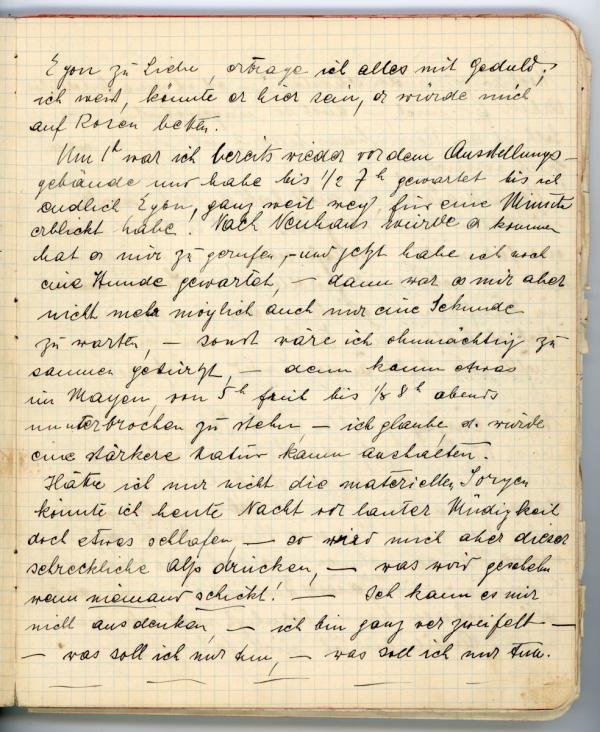 Egon zu Liebe, ertrage ich alles mit Geduld;
ich weis, könnte er hier sein, er würde mich
auf Rosen betten.
Um 1h war ich bereits wieder vor dem Ausstellungs-
gebäude und habe bis 1/2 7h gewartet bis ich
endlich Egon, ganz weit weg, für eine Minute
erblickt habe. Nach Neuhaus würde er kommen
hat er mir zu gerufen, – und jetzt habe ich noch
eine Stunde gewartet, – dann war es mir aber
nicht mehr möglich auch nur eine Sekunde
zu warten, – sonst wäre ich ohnmächtig zu
sammen gestürzt, – denn kaum etwas
im Magen, von 5h früh bis 1/2 8h abends
ununterbrochen zu stehn, – ich glaube, es würde
eine stärkere Natur kaum aushalten.
Hätte ich nur nicht die materiellen Sorgen
könnte ich heute Nacht vor lauter Müdigkeit
doch etwas schlafen, – so wird mich aber dieser
schreckliche Alp drücken, – was wird geschehn
wenn niemand schickt! – Ich kann es mir
nicht ausdenken, – ich bin ganz verzweifelt –
– was soll ich nur tun, – was soll ich nur tun.